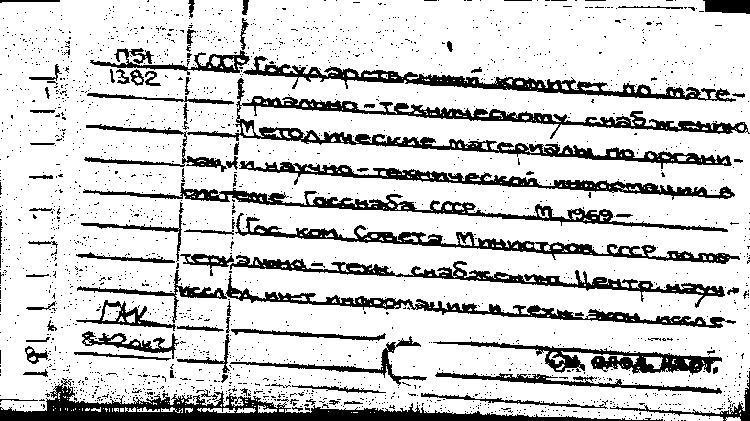 П51
1382
СССР Государственный комитет по мате-
риально-техническому снабжению
Методические материалы по органи-
зации научно-технической информации в
системе Госснаба СССР. М., 1969-
(Гос. ком. Совета Министров СССР по мате-
териально-техн. снабжению Центр. науч.-
исслед. ин-т информации и техн.-экон. иссле-
ГАК
См. след. карт.